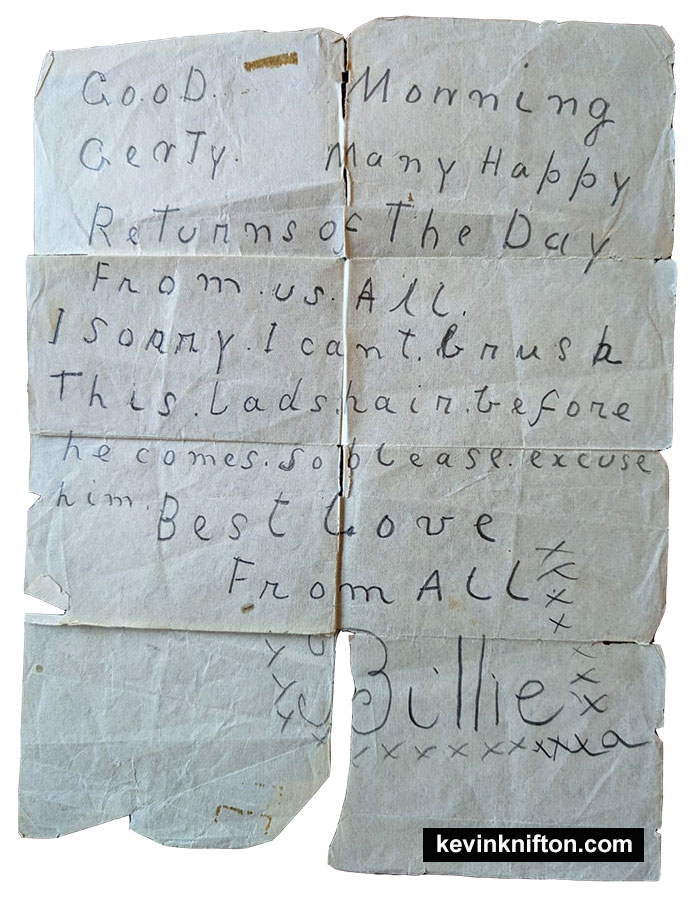 GooD. Morning
GerTy. Many Happy
ReTurns of The Day
From.us.All.
I Sorry.I cant.brush
This.lads.hair.before
he comes.so please.excuse
him. Best Love
From All x
x
x
x
x Billie x
x x
x x
x x x x x x x x x x a
kevinknifton.com